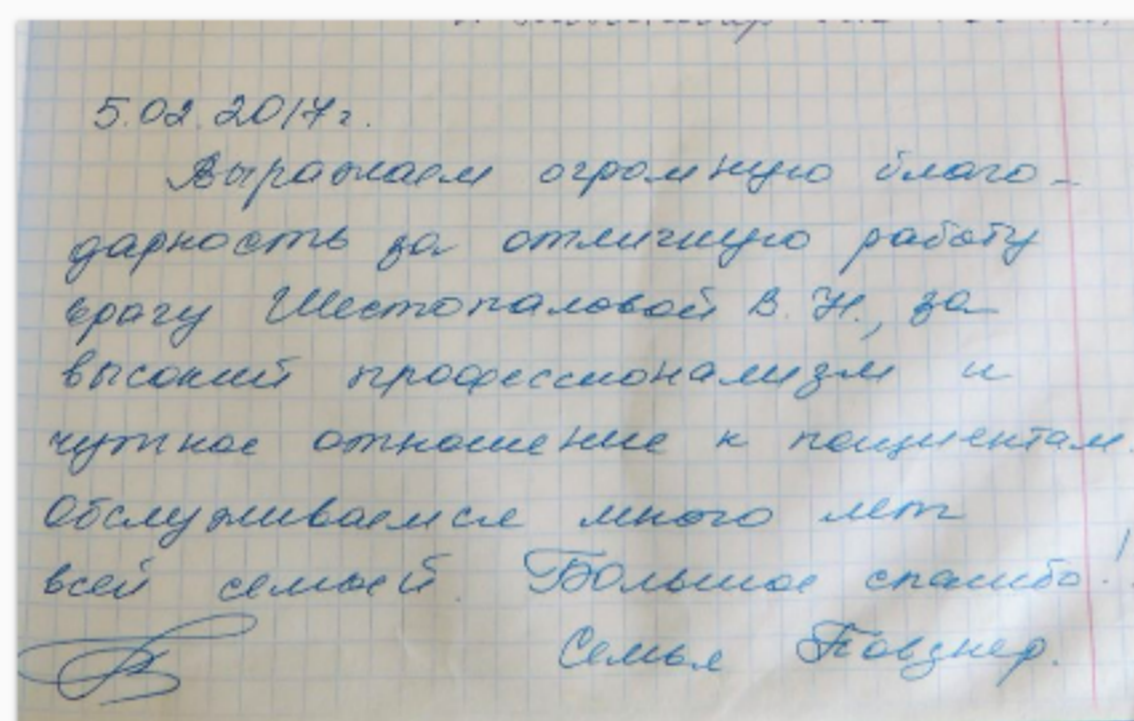 5.02.2017г.
Выражаем огромную благо-
дарность за отличную работу
врачу Шестопаловой В. Н., за
высокий профессионализм и
чуткое отношение к пациентам.
Обслуживаемся много лет
всей семьей. Большое спасибо!
Семья Повзнер.